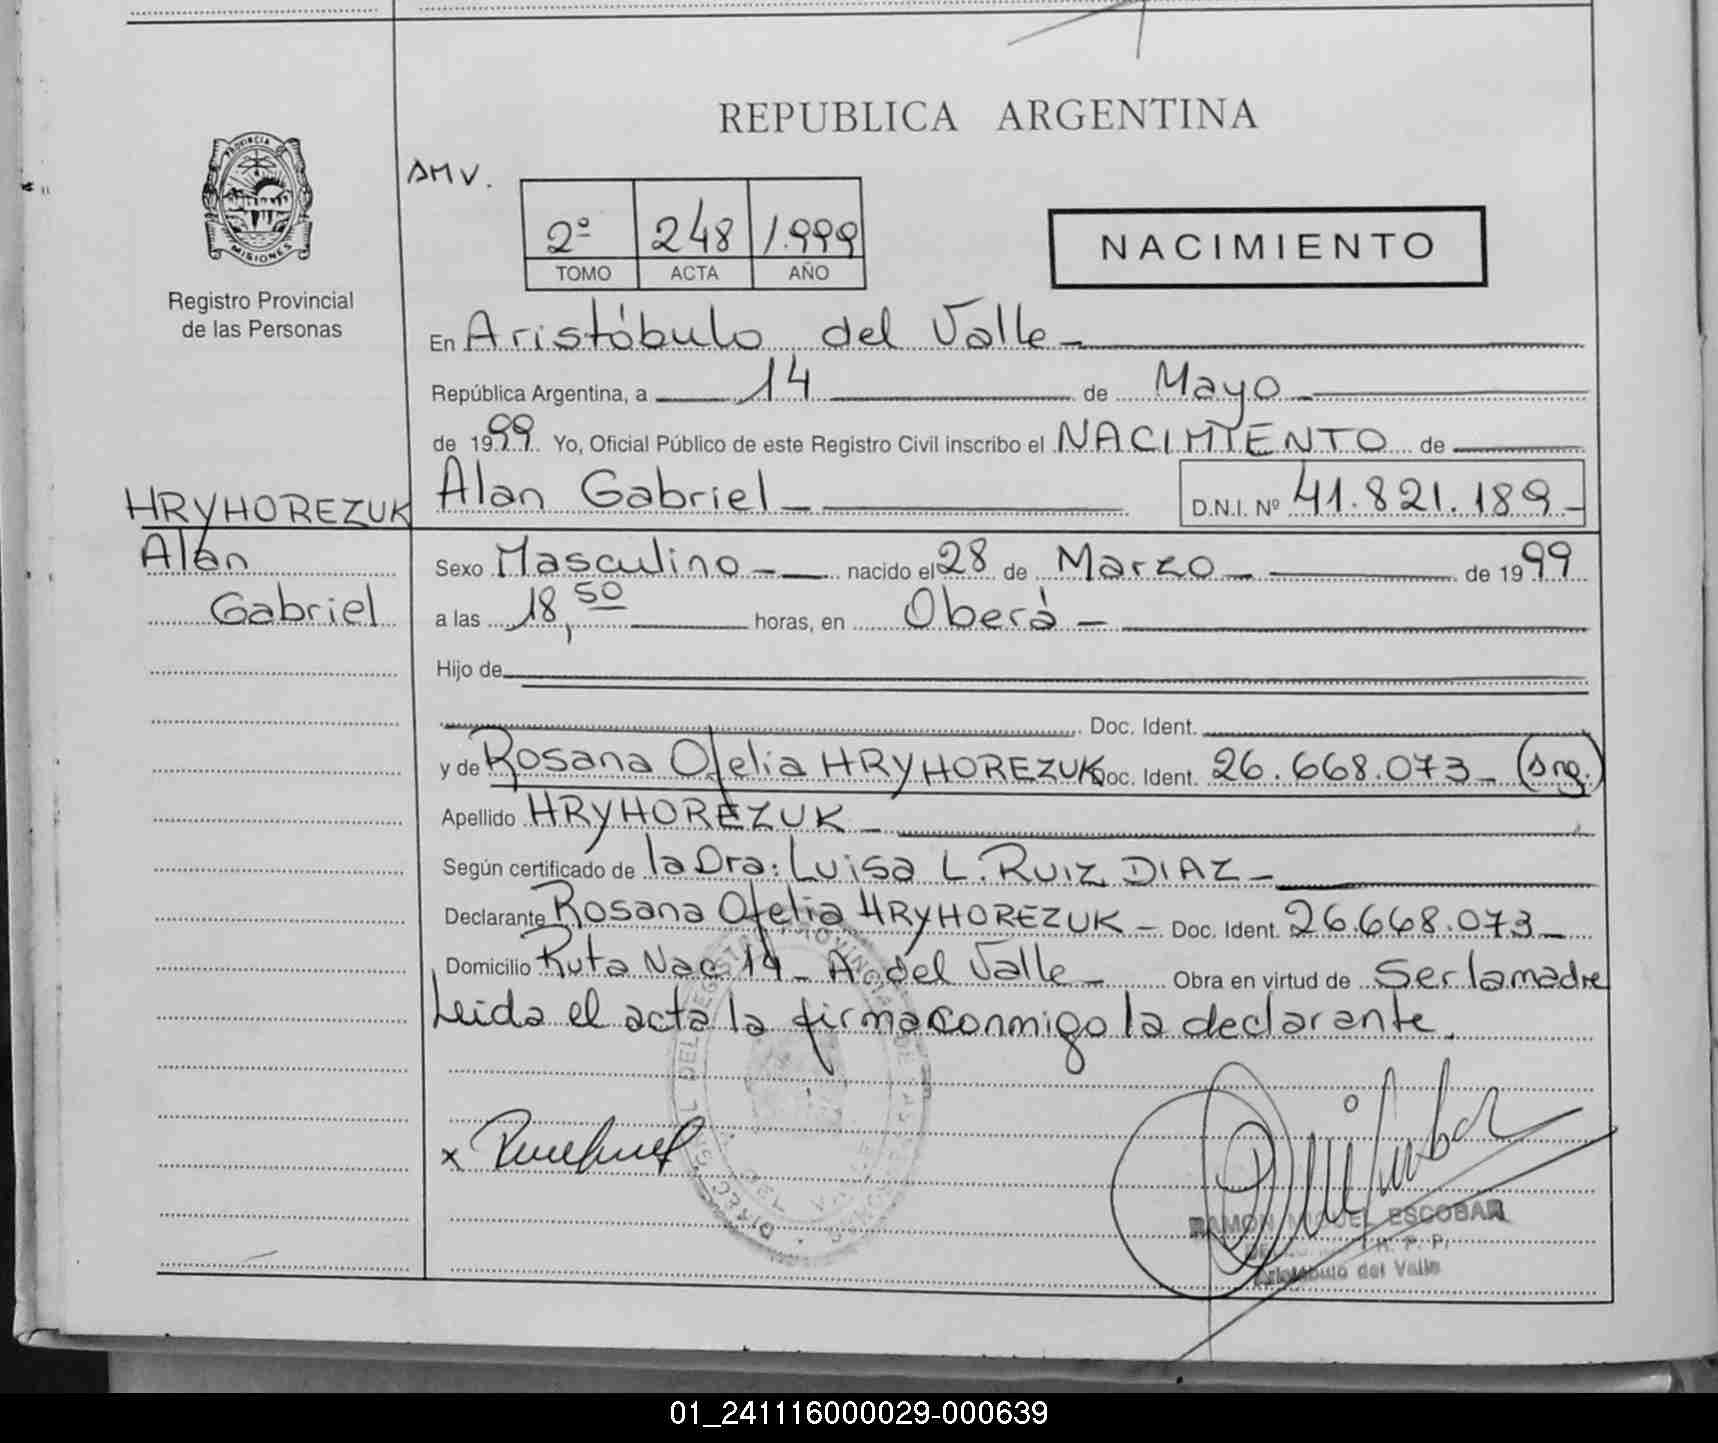 REPUBLICA ARGENTINA
PROVINCIA
MISIONES
Registro Provincial
de las Personas
AMV.
2º 248 1.999
TOMO ACTA AÑO
NACIMIENTO
En Aristóbulo del Valle
República Argentina, a 14 de Mayo
de 1999 Yo, Oficial Público de este Registro Civil inscribo el NACIMIENTO de
Alan Gabriel D.N.I. Nº 41.821.189
HRYHOREZUK
Alan
Gabriel
Sexo Masculino nacido el 28 de Marzo de 1999
a las 18,50 horas, en Oberá
Hijo de
Doc. Ident.
y de Rosana Ofelia HRYHOREZUK Doc. Ident. 26.668.073 (Arg.)
Apellido HRYHOREZUK
Según certificado de la Dra: Luisa L. RUIZ DIAZ
Declarante Rosana Ofelia HRYHOREZUK Doc. Ident. 26.668.073
Domicilio Ruta Nac 14 - A. del Valle Obra en virtud de Ser la madre
Leida el acta la firma conmigo la declarante.
x
RAMON MIGUEL ESCOBAR
R. P. P.
Aristóbulo del Valle
01_241116000029-000639